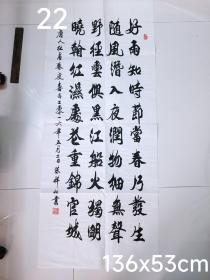 22
好雨知時節當春乃發生
隨風潛入夜潤物細無聲
野徑雲俱黑江船火獨明
曉看紅濕處花重錦官城
唐人杜甫春夜喜雨二零一六年五月 日 祥 書
136x53cm